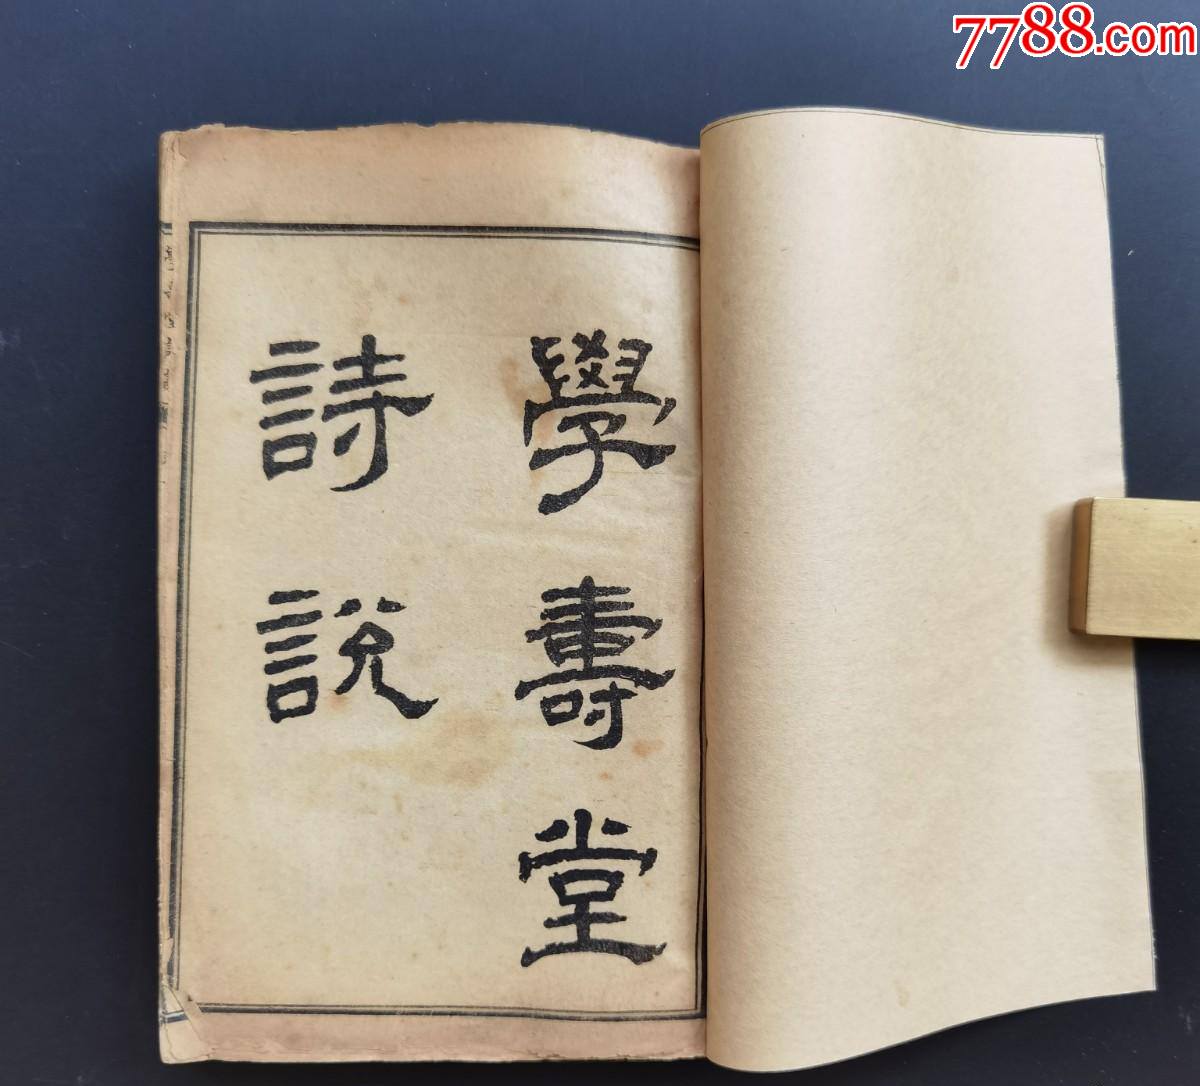 7788.com
學壽堂
詩說